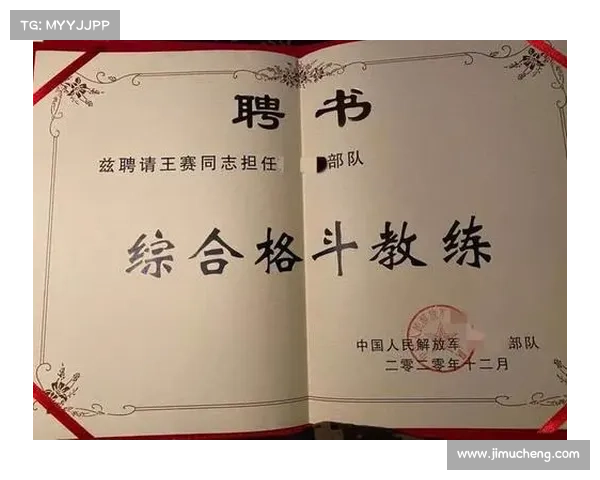 TG: MYYJJPP
聘书
兹聘请王赛同志担任 部队
综合格斗教练
中国人民解放军 部队
二零二零年十二月
www.jimucheng.com